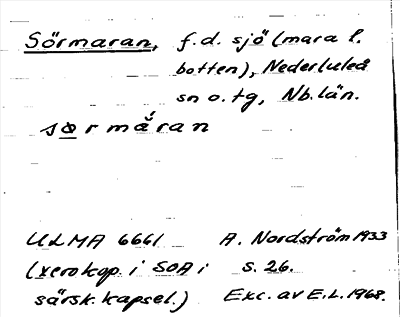 Sörmaran, f.d. sjö (mara l.
botten), Nederluleå
sn o. tg, Nb. län.
sørmáran
ULMA 6661 A. Nordström 1933
(xerokop. i SOA i s. 26.
särsk. kapsel.) Exc. av E.L. 1968.